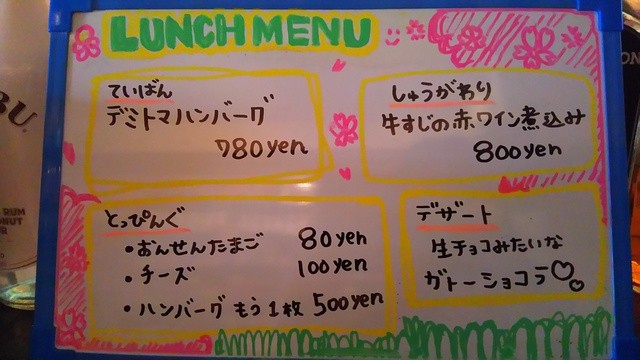 LUNCH MENU
ていばん
デミトマハンバーグ
780yen
しゅうがわり
牛すじの赤ワイン煮込み
800yen
とっぴんぐ
・おんせんたまご 80yen
・チーズ 100yen
・ハンバーグ もう1枚 500yen
デザート
生チョコみたいな
ガトーショコラ♡♡
BU.
RUM